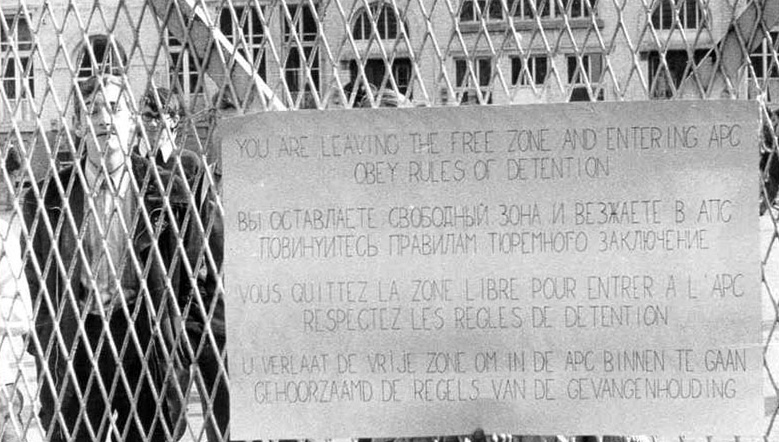 YOU ARE LEAVING THE FREE ZONE AND ENTERING APC
OBEY RULES OF DETENTION
ВЫ ОСТАВЛАЕТЕ СВОБОДНЫЙ ЗОНА И ВЕЗЖАЕТЕ В АПС
ПОВИНУИТЕСЬ ПРАВИЛАМ ТЮРЕМНОГО ЗАКЛЮЧЕНИЕ
VOUS QUITTEZ LA ZONE LIBRE POUR ENTRER A L'APC
RESPECTEZ LES REGLES DE DETENTION
U VERLAAT DE VRIJE ZONE OM IN DE APC BINNEN TE GAAN
GEHOORZAAMD DE REGELS VAN DE GEVANGENHOUDING